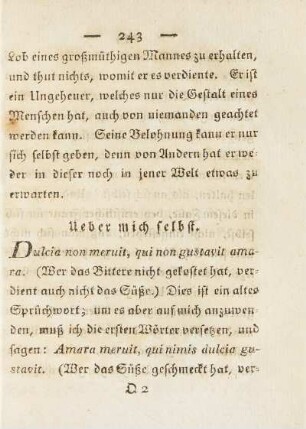 — 243 —
Lob eines großmüthigen Mannes zu erhalten,
und thut nichts, womit er es verdiente. Er ist
ein Ungeheuer, welches nur die Gestalt eines
Menschen hat, auch von niemanden geachtet
werden kann. Seine Belohnung kann er nur
sich selbst geben, denn von Andern hat er we-
der in dieser noch in jener Welt etwas zu
erwarten.
Ueber mich selbst.
Dulcia non meruit, qui non gustavit ama-
ra. (Wer das Bittere nicht gekostet hat, ver-
dient auch nicht das Süße.) Dies ist ein altes
Sprüchwort; um es aber auf mich anzuwen-
den, muß ich die ersten Wörter versetzen, und
sagen: Amara meruit, qui nimis dulcia gu-
stavit. (Wer das Süße geschmeckt hat, ver-
Q 2